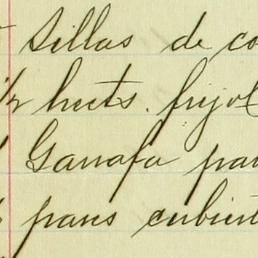 Sillas de co
1/2 hects. frijol
Garrafa par
pares cubiert